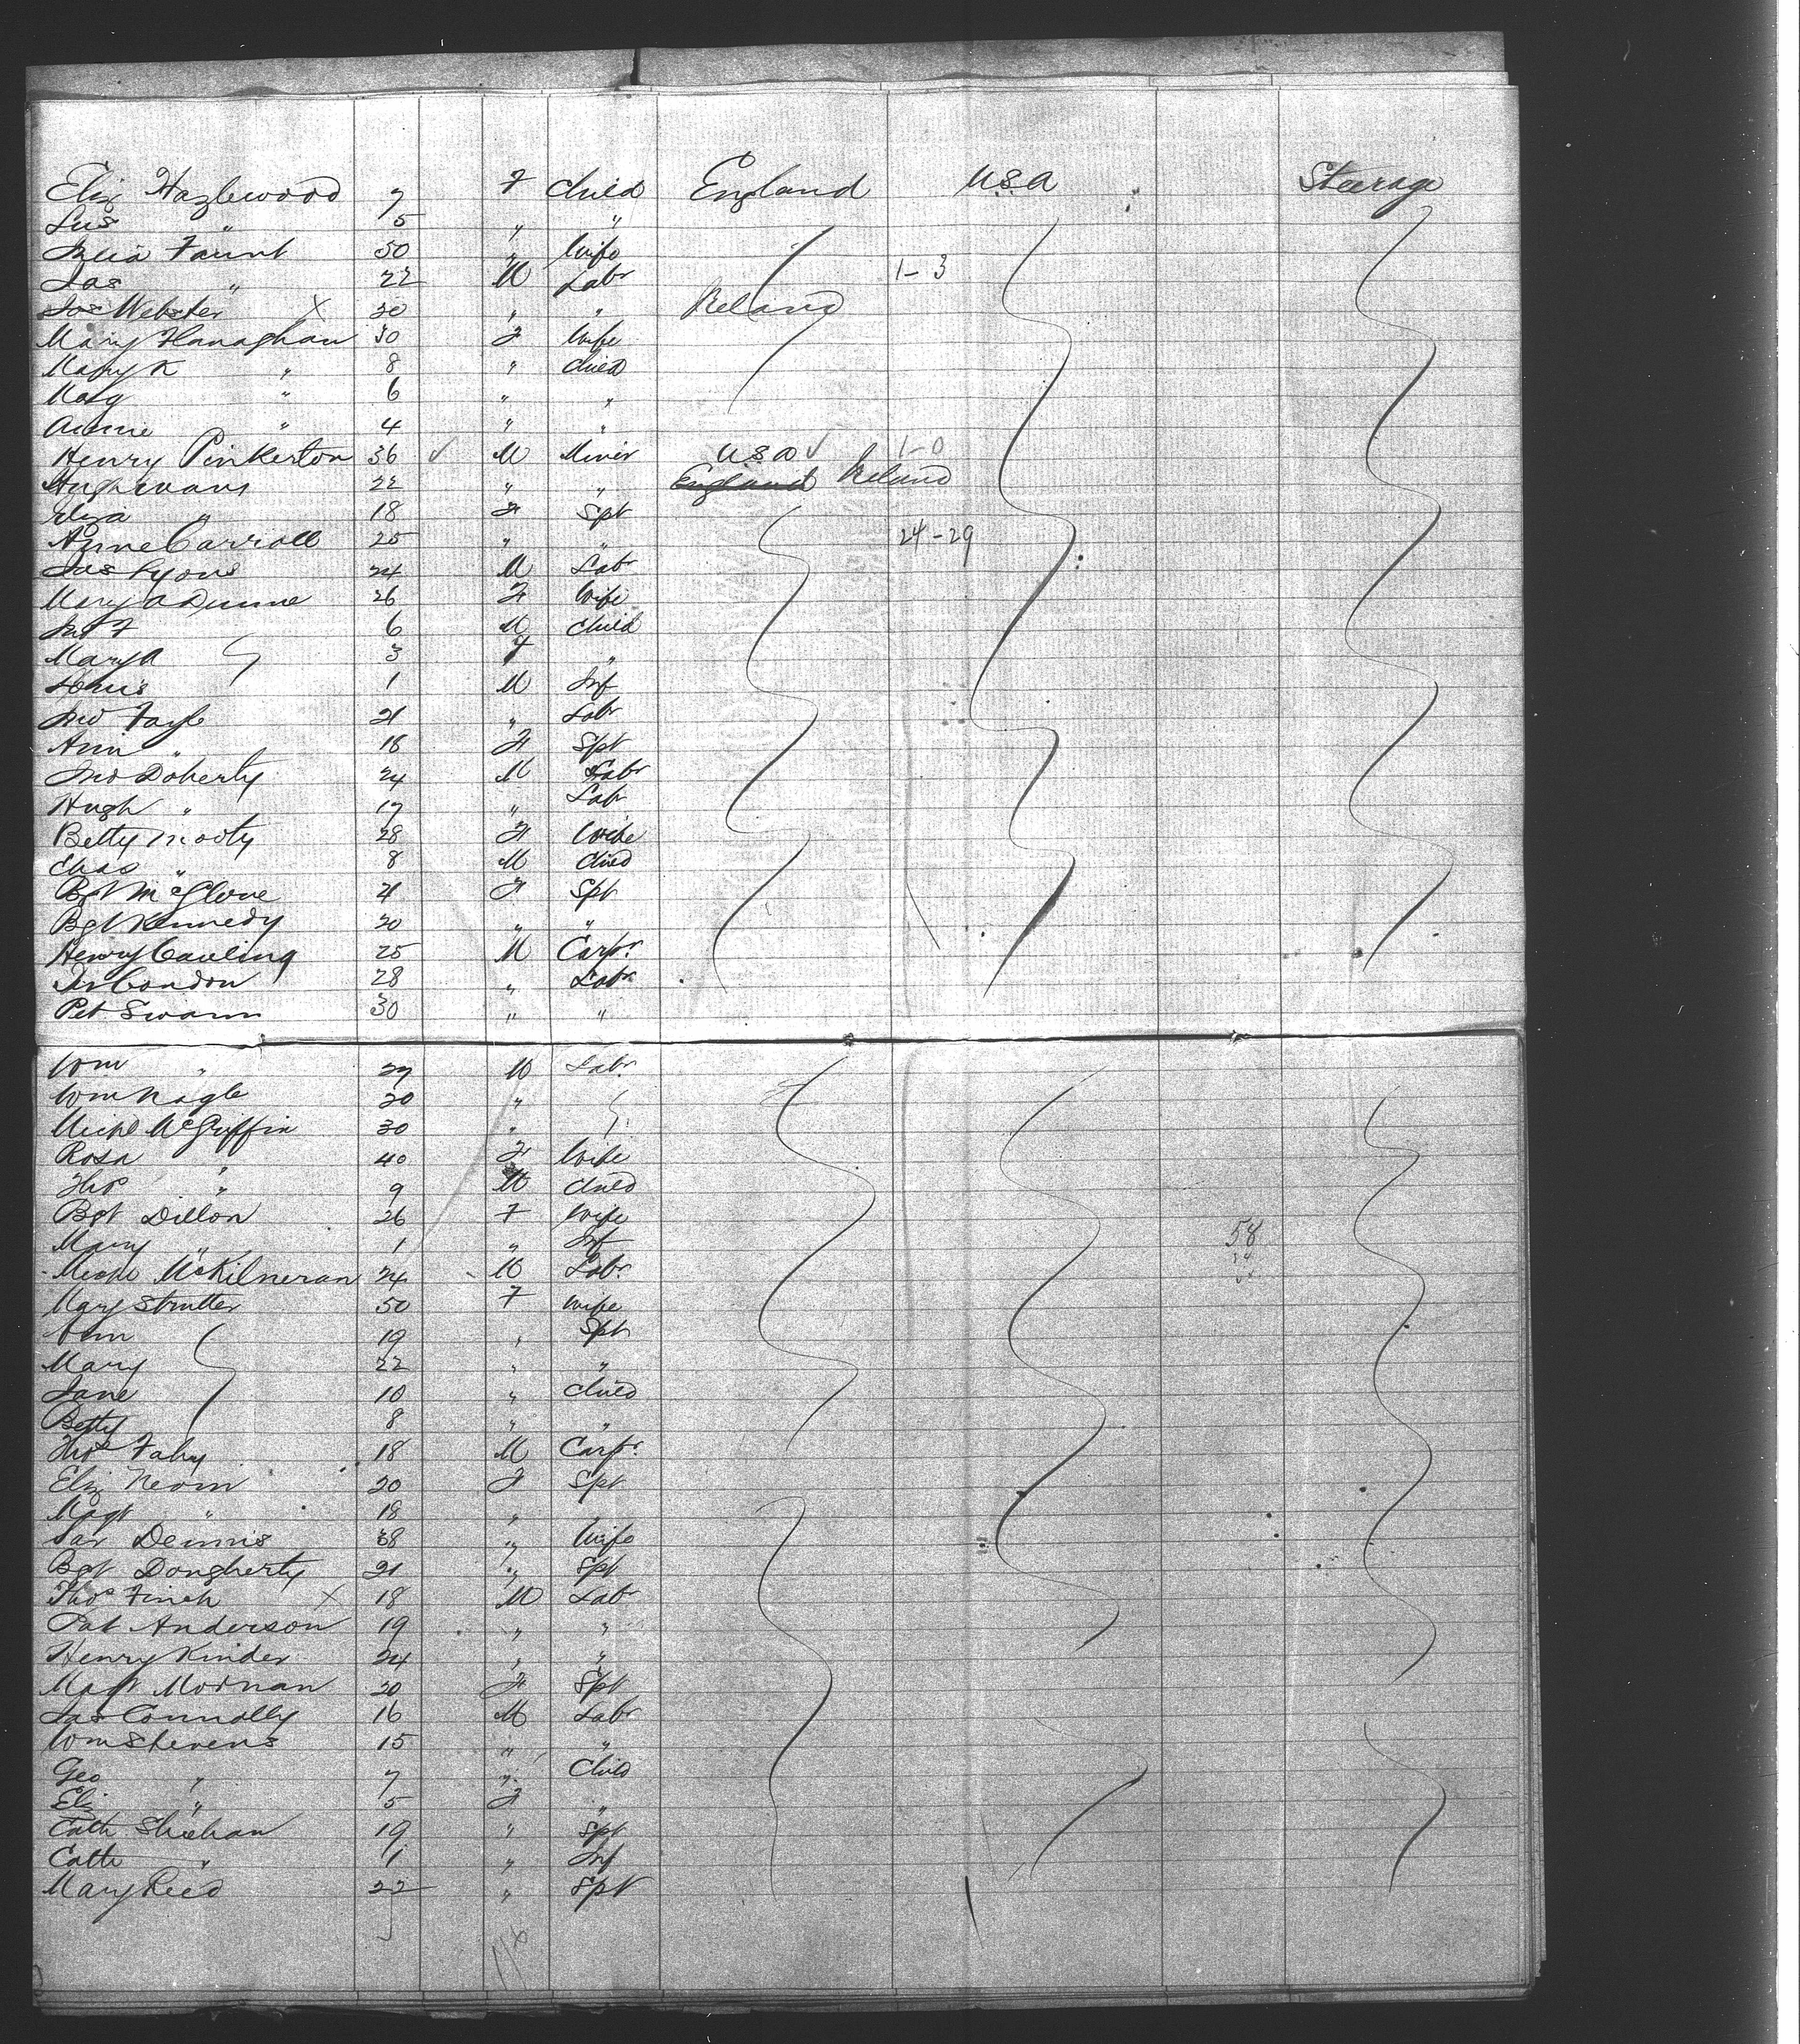 Eliz Hazlewood 7 F Child England USA Steerage
Lus " 5 " "
Julia Faunt 50 " Wife
Jas " 22 M Labr 1-3
Jos Webster X 20 " " Ireland
Mary Flanaghan 30 F Wife
Mary K " 8 " Child
Marg " 6 " "
Annie " 4 " "
Henry Pinkerton 36 ✓ M Miner USA ✓ 1-0
Hugh Evans 22 " " Ireland
Eliza " 18 F Spt
Anne Carroll 25 " " 24-29
Jas Lyons 24 M Labr
Mary A Dunne 26 F Wife
Jno F 6 M Child
Mary A 3 F "
Louis 1 M Inf
Jno Fayle 21 " Labr
Ann " 18 F Spt
Jno Doherty 24 M Labr
Hugh " 17 " Labr
Betty Mooty 28 F Wife
Chas " 8 M Child
Bgt McGlone 21 F Spt
Bgt Kennedy 20 " "
Henry Cauling 25 M Carpr.
Condon 28 " Labr
Pet Swann 30 " "
Wm " 27 M Labr
Wm Nagle 20 "
Michl McGuffin 30 "
Rosa " 40 F Wife
Thos " 9 M Child
Bgt Dillon 26 F Wife
Mary " 1 " Inf 58
Michl McKilneran 24 M Labr
Mary Strutter 50 F Wife
Ann 19 " Spt
Mary 22 " "
Jane 10 " Child
Betty 8 " "
Thos Fahy 18 M Carpr.
Eliz Neorin 20 F Spt
Magt " 18 " "
Sar Dennis 38 " Wife
Bgt Dougherty 21 " Spt
Thos Finch X 18 M Labr
Pat Anderson 19 " "
Henry Kinder 24 " "
Magt Mornan 20 F Spt
Jas Connolly 16 M Labr
Wm Stevens 15 " "
Geo " 7 " Child
Eliz " 5 F "
Cath Sheehan 19 " Spt
Cath " 1 " Inf
Mary Reed 22 " Spt